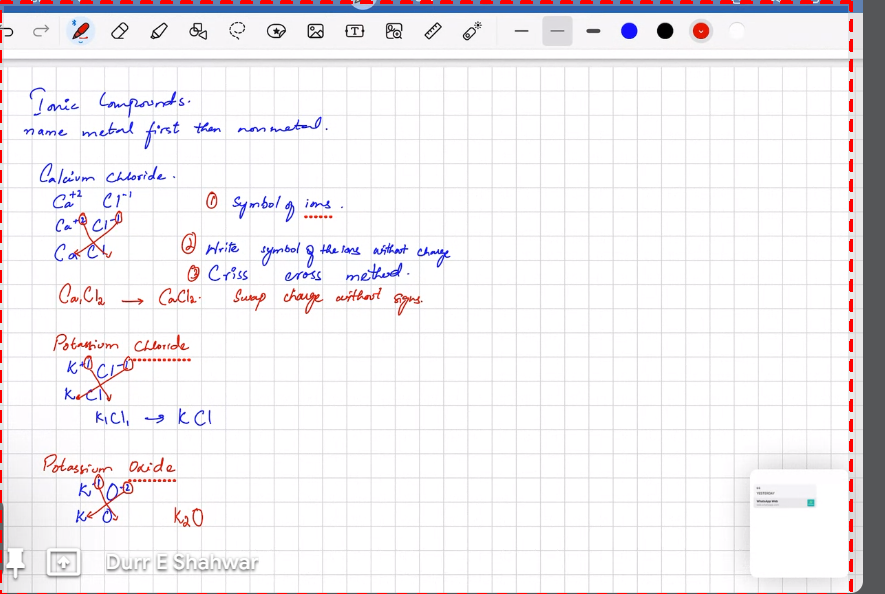 Ionic Compounds.
name metal first then nonmetal.
Calcium chloride.
Ca+2 Cl-1
① Symbol of ions.
Ca+2 Cl-1
Ca Cl
② Write symbol of the ions without charge
③ Criss cross method.
Ca1Cl2 → CaCl2. Swap charge without signs.
Potassium Chloride
K+1 Cl-1
K Cl
K1Cl1 → KCl
Potassium Oxide
K+1 O-2
K O K2O
Durr E Shahwar
YESTERDAY